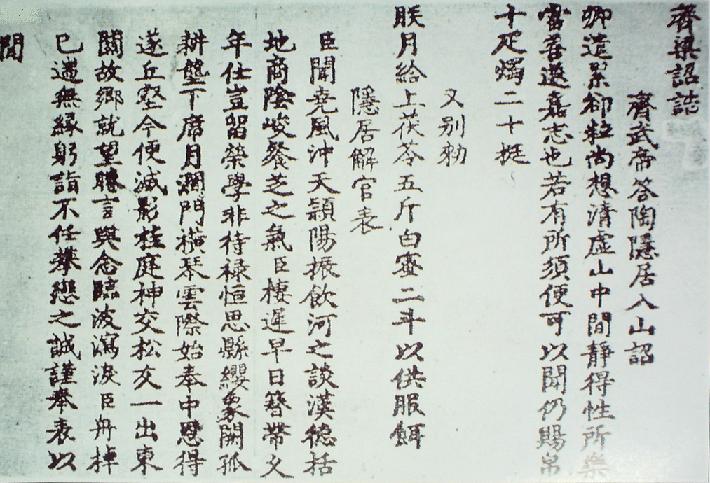 齊梁詔誥
齊武帝答陶隱居入山詔
卿遣累却粒尚想清虛山中閒靜得性所樂
當善遂嘉志也若有所須便可以聞仍賜帛
十疋燭二十挺
又別勑
朕月給上茯苓五斤白蜜二斗以供服餌
隱居解官表
臣聞堯風沖天穎陽振飲河之談漢德括
地商陰峻飡芝之氣臣棲遲早日簪帶久
年仕豈留榮學非待祿恒思縣纓象闕孤
耕壟下席月澗門橫琴雲際始奉中恩得
遂丘壑今便滅影桂庭神交松友一出東
關故鄉就望睠言興念臨波瀉淚臣舟棹
已遄無緣躬詣不任攀戀之誠謹奉表以
聞